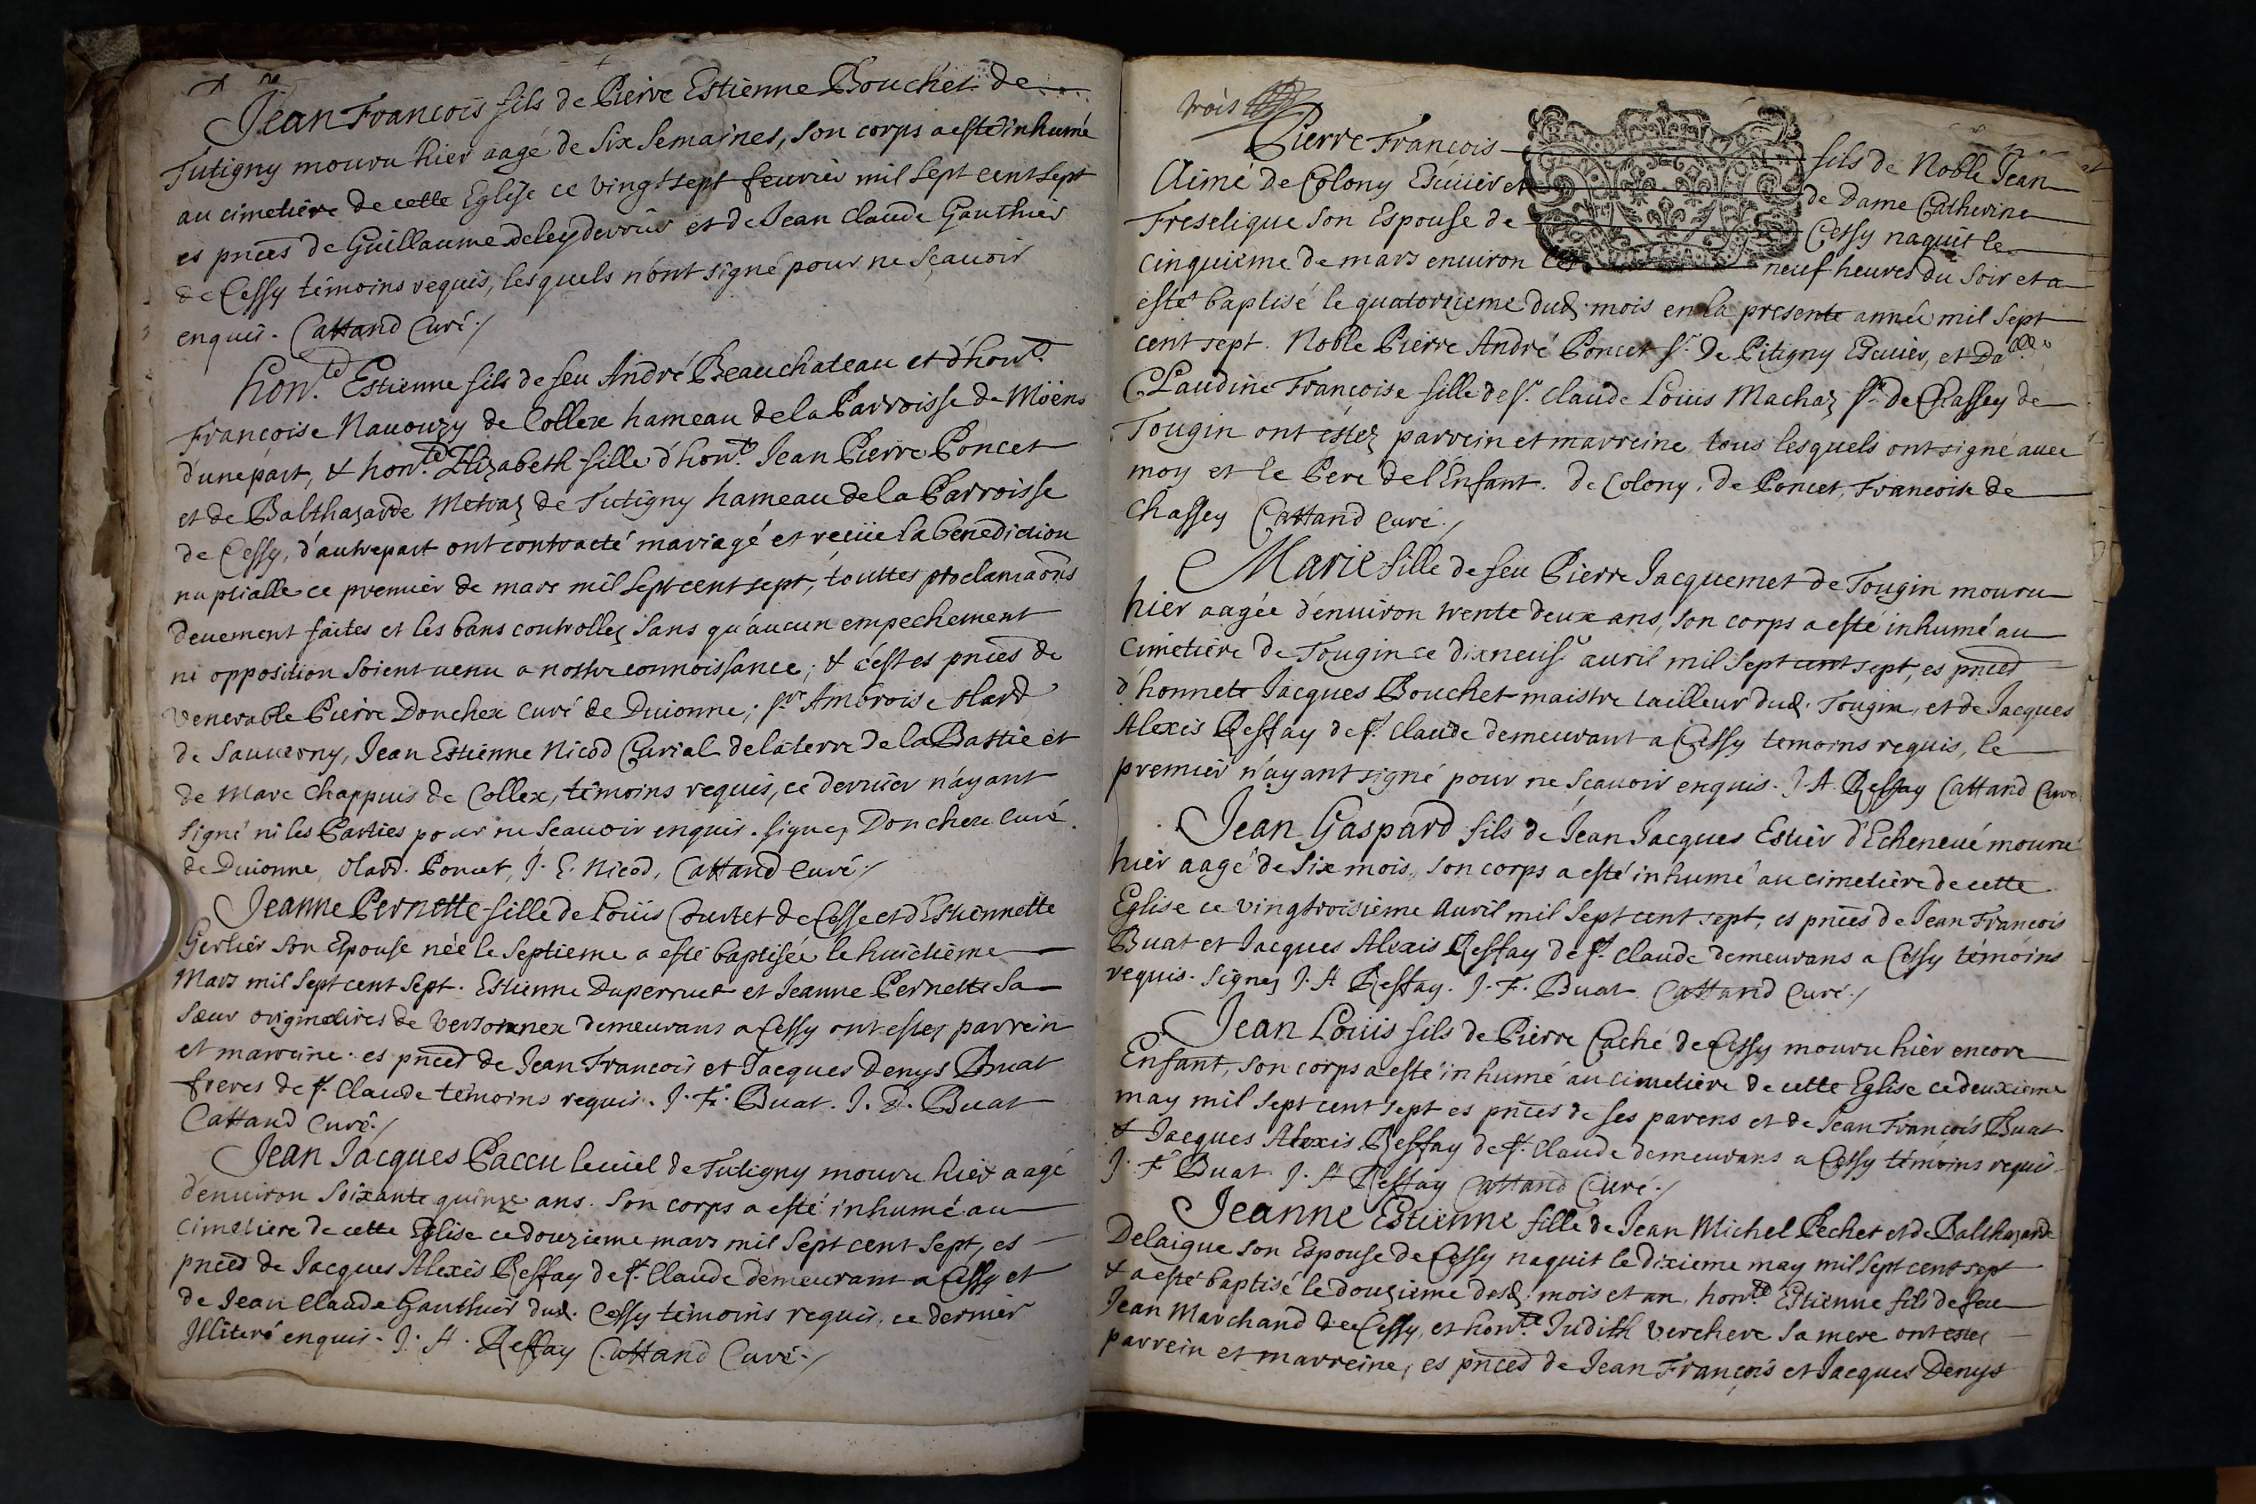 Jean Francois fils de Pierre Estienne Bouchet de
Tutigny mouru hier aagé de Six Semaines, Son corps a esté inhumé
au cimetière de cette Eglise ce vingt sept feurier mil Sept cent sept
es pnces de Guillaume deleyderrier et de Jean Claude Gauthier
de Cessy témoins requis, lesquels n'ont signé pour ne Sçauoir
enquis. Cattand Curé./
hon.te Estienne fils de feu André Beauchateau et d'hon.te
Françoise Nauouzy de Collex hameau de la Parroisse de Möens
d'une part, & hon.te Elizabeth fille d'hon.te Jean Pierre Poncet
et de Balthazarde Metraz de Tutigny hameau de la Parroisse
de Cessy, d'autre part ont contracté mariagé et reciie la benediction
nuptialle ce premier de mars mil Sept cent sept, touttes proclamaons
deuement faites et les bans controllez Sans qu'aucun empechement
ni opposition Soient uenu a nostre connoissance; & c'est es pnces de
Venerable Pierre Donchex curé de Diuonne; Sr Ambroise olard
de Sauuerny, Jean Estienne Nicod Curial de la terre de la Bastie et
de Marc Chappuis de Collex, témoins requis, ce dernier n'ayant
Signé ni les Parties pour ne Scauoir enquis. Signez Donchex Curé
de Diuonne, olard. Poncet, J. E. Nicod, Cattand Curé./
Jeanne Pernette fille de Loüis Courtet de Cesse et d'Estiennette
Gerlier Son Espouse née le Septieme a esté baptisée le huictiéme
Mars mil Sept cent Sept. Estienne Duperruet et Jeanne Pernette Sa
Sœur originaires de Versonnex demeurans a Cessy ont estez parrein
et marreine. es pnces de Jean Francois et Jacques denys Buat
freres de St. Claude témoins requis. J. F. Buat. J. D. Buat
Cattand Curé./
Jean Jacques Paccu le uiel de Tutigny mouru hier aagé
d'enuiron Soixante quinze ans. Son corps a esté inhumé au
Cimetiere de cette Eglise ce douzieme mars mil Sept cent Sept, es
pnces de Jacques Alexis Reffay de St. Claude demeurant a Cessy et
de Jean Claude Gauthier dud. Cessy témoins requis, ce dernier
Illiteré enquis. J. A. Reffay Cattand Curé./
trois
Pierre Francois fils de Noble Jean
Aimé de Colony Escuiier et de Dame Catherine
Freselique Son Espouse de Cessy naquit le
cinquieme de mars enuiron les neuf heures du Soir et a
esté baptisé le quatorzieme dud. mois en la presente année mil Sept
cent sept. Noble Pierre André Poncet Sr. de Pitigny Escuier, et Da.lle
Claudine Françoise fille de Sr. Claude Loüis Machaz Sr. de Chassey de
Tougin ont estéz parrein et marreine tous lesquels ont signé auec
moy et le Pere de l'Enfant. de Colony. de Poncet, Francoise de
Chassey Cattand Curé./
Marie fille de feu Pierre Jacquemet de Tougin mouru
hier aagée d'enuiron trente deux ans, Son corps a esté inhumé au
Cimetiere de Tougin ce dixneuf auril mil Sept cent sept, es pnces
d'honnete Jacques Bouchet maistre tailleur dud. Tougin, et de Jacques
Alexis Reffay de St. Claude demeurant a Cessy temoins requis, le
premier n'ayant signé pour ne Scauoir enquis. J. A. Reffay Cattand Curé
Jean Gaspard fils de Jean Jacques Estier d'Echeneué mouru
hier aagé de Six mois, Son corps a esté inhumé au cimetière de cette
Eglise ce vingtroisième Auril mil Sept cent sept, es pnces de Jean Francois
Buat et Jacques Alexis Reffay de St. Claude demeurans a Cessy témoins
requis. Signez J. A Reffay. J. F. Buat. Cattand Curé./
Jean Loüis fils de Pierre Caché de Cessy mouru hier encore
Enfant, Son corps a esté inhumé au cimetière de cette Eglise ce deuxieme
may mil Sept cent sept es pnces de ses parens et de Jean Francois Buat
& Jacques Alexis Reffay de St. Claude demeurans a Cessy témoins requis.
J. F Buat. J. A Reffay Cattand Curé./
Jeanne Estienne fille de Jean Michel Pechet et de Balthazarde
Delaigue Son Espouse de Cessy naquit le dixieme may mil Sept cent sept
& a esté baptisé le douzieme desd. mois et an. hon.te Estienne fils de feu
Jean Marchand de Cessy, et hon.te Judith Verchere Sa mere ont estez
parrein et marreine, es pnces de Jean François et Jacques Denys